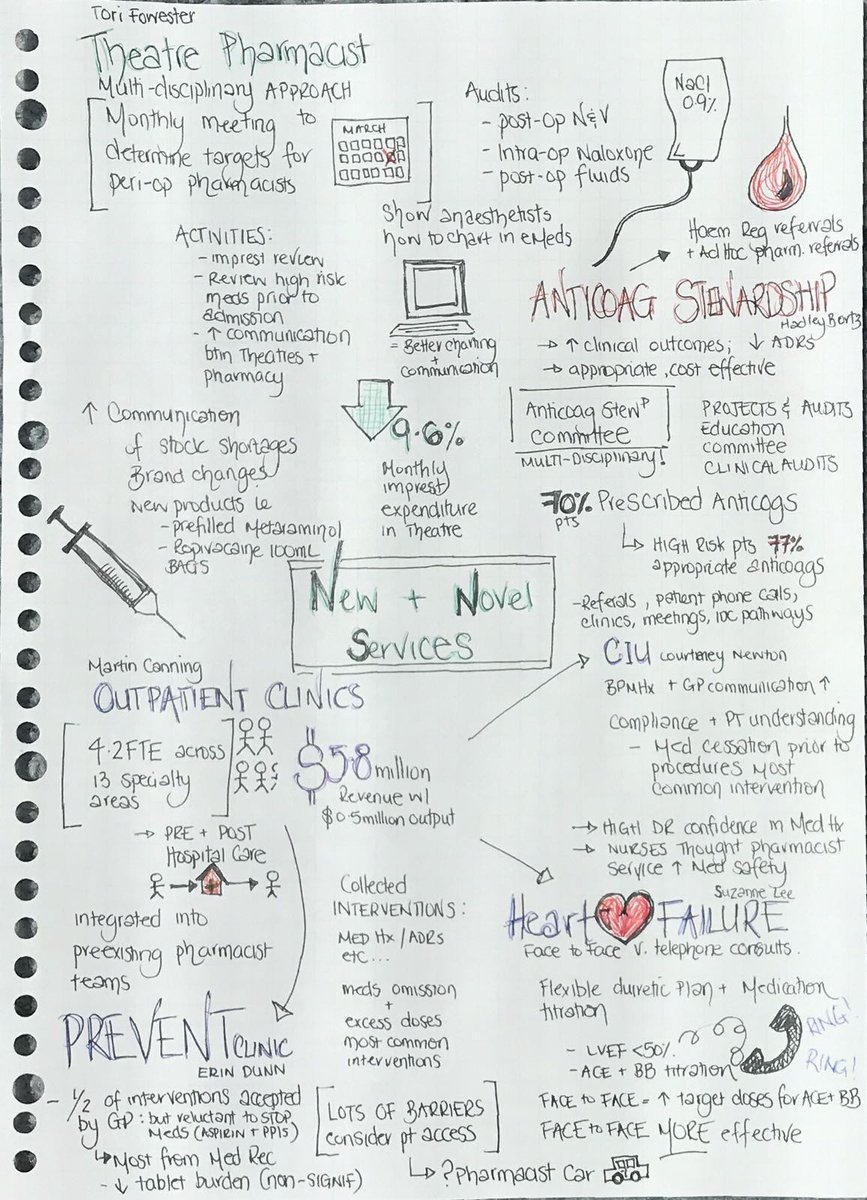 Tori Forrester
Theatre Pharmacist
Multi-disciplinary APPROACH
Monthly meeting to
determine targets for
peri-op pharmacists
MARCH
Audits:
- post-op N&V
- Intra-op Naloxone
- post-op fluids
NaCl
0.9%
ACTIVITIES:
- imprest review
- Review high risk
meds prior to
admission
- ↑ communication
btn Theatres +
pharmacy
Show anaesthetists
how to chart in eMeds
= Better charting
+
communication
↑ Communication
of stock shortages
Brand changes
New products ie
- prefilled Metaraminol
- Ropivacaine 100mL
BAGS
9.6%
Monthly
imprest
expenditure
in Theatre
Haem Reg referrals
+ Ad Hoc pharm. referrals
ANTICOAG STEWARDSHIP
Hadley Bortz
→ ↑ clinical outcomes; ↓ ADRs
→ appropriate, cost effective
Anticoag Stewp
committee
MULTI-DISCIPLINARY!
PROJECTS & AUDITS
Education
committee
CLINICAL AUDITS
70% Prescribed Anticogs
pts
↳ HIGH RISK pts 77%
appropriate anticoags
- Referals, patient phone calls,
clinics, meetings, IOC pathways
New + Novel
Services
Martin Canning
OUTPATIENT CLINICS
4.2FTE across
13 specialty
areas
$5.8 million
Revenue w/
$0.5million output
→ PRE + POST
Hospital Care
integrated into
preexisting pharmacist
teams
Collected
INTERVENTIONS:
MED Hx / ADRs
etc...
meds omission
+
excess doses
most common
interventions
CIU Courtney Newton
BPMHx + GP communication ↑
compliance + PT understanding
- Med cessation prior to
procedures most
common intervention
→ HIGH DR confidence in Med Hx
→ NURSES Thought pharmacist
service ↑ Med safety
Suzanne Lee
Heart FAILURE
Face to Face v. telephone consults.
Flexible diuretic Plan + Medication
titration
- LVEF <50%
- ACE + BB titration
RING!
RING!
FACE to FACE = ↑ target doses for ACE + BB
FACE to FACE MORE effective
PREVENT CLINIC
ERIN DUNN
- 1/2 of interventions accepted
by GP: but reluctant to STOP
Meds (ASPIRIN + PPIs)
↳ Most from Med Rec
- ↓ tablet burden (non-SIGNIF)
LOTS OF BARRIERS
consider pt access
↳ ? Pharmacist Car